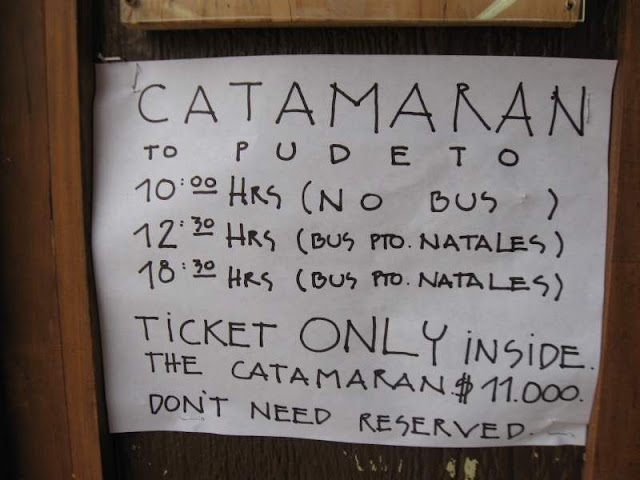 CATAMARAN
TO PUDETO
10:00 HRS (NO BUS)
12:30 HRS (BUS PTO. NATALES)
18:30 HRS (BUS PTO. NATALES)
TICKET ONLY INSIDE.
THE CATAMARAN. $ 11.000.
DON'T NEED RESERVED.